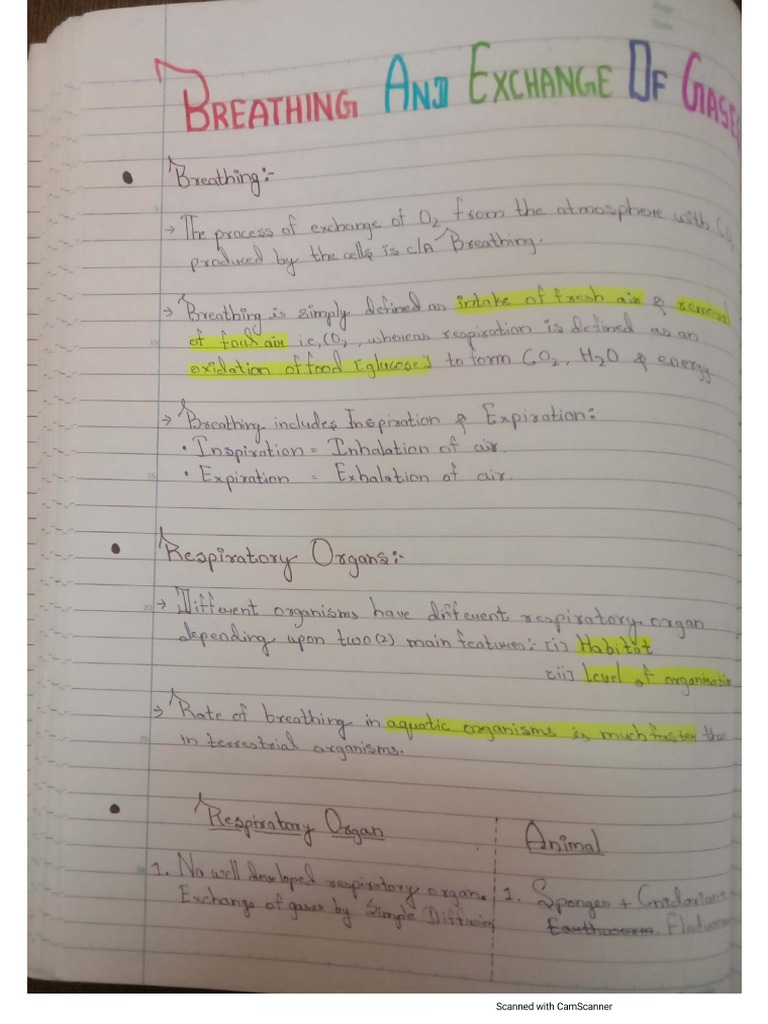 BREATHING AND EXCHANGE OF GASES
• Breathing:-
→ The process of exchange of O2 from the atmosphere with CO2
produced by the cells is c/a Breathing.
→ Breathing is simply defined as intake of fresh air & removal
of foul air i.e, CO2, whereas respiration is defined as an
oxidation of food [glucose] to form CO2, H2O & energy.
→ Breathing includes Inspiration & Expiration:
• Inspiration = Inhalation of air.
• Expiration = Exhalation of air.
• Respiratory Organs:-
→ Different organisms have different respiratory organ
depending upon two(2) main features: [i] Habitat
[ii] Level of organisation
→ Rate of breathing in aquatic organisms is much faster than
in terrestrial organisms.
• Respiratory Organ Animal
1. No well developed respiratory organ. 1. Sponges + Cnidarians +
Exchange of gases by Simple Diffusion Earthworm. Flatworm
Scanned with CamScanner